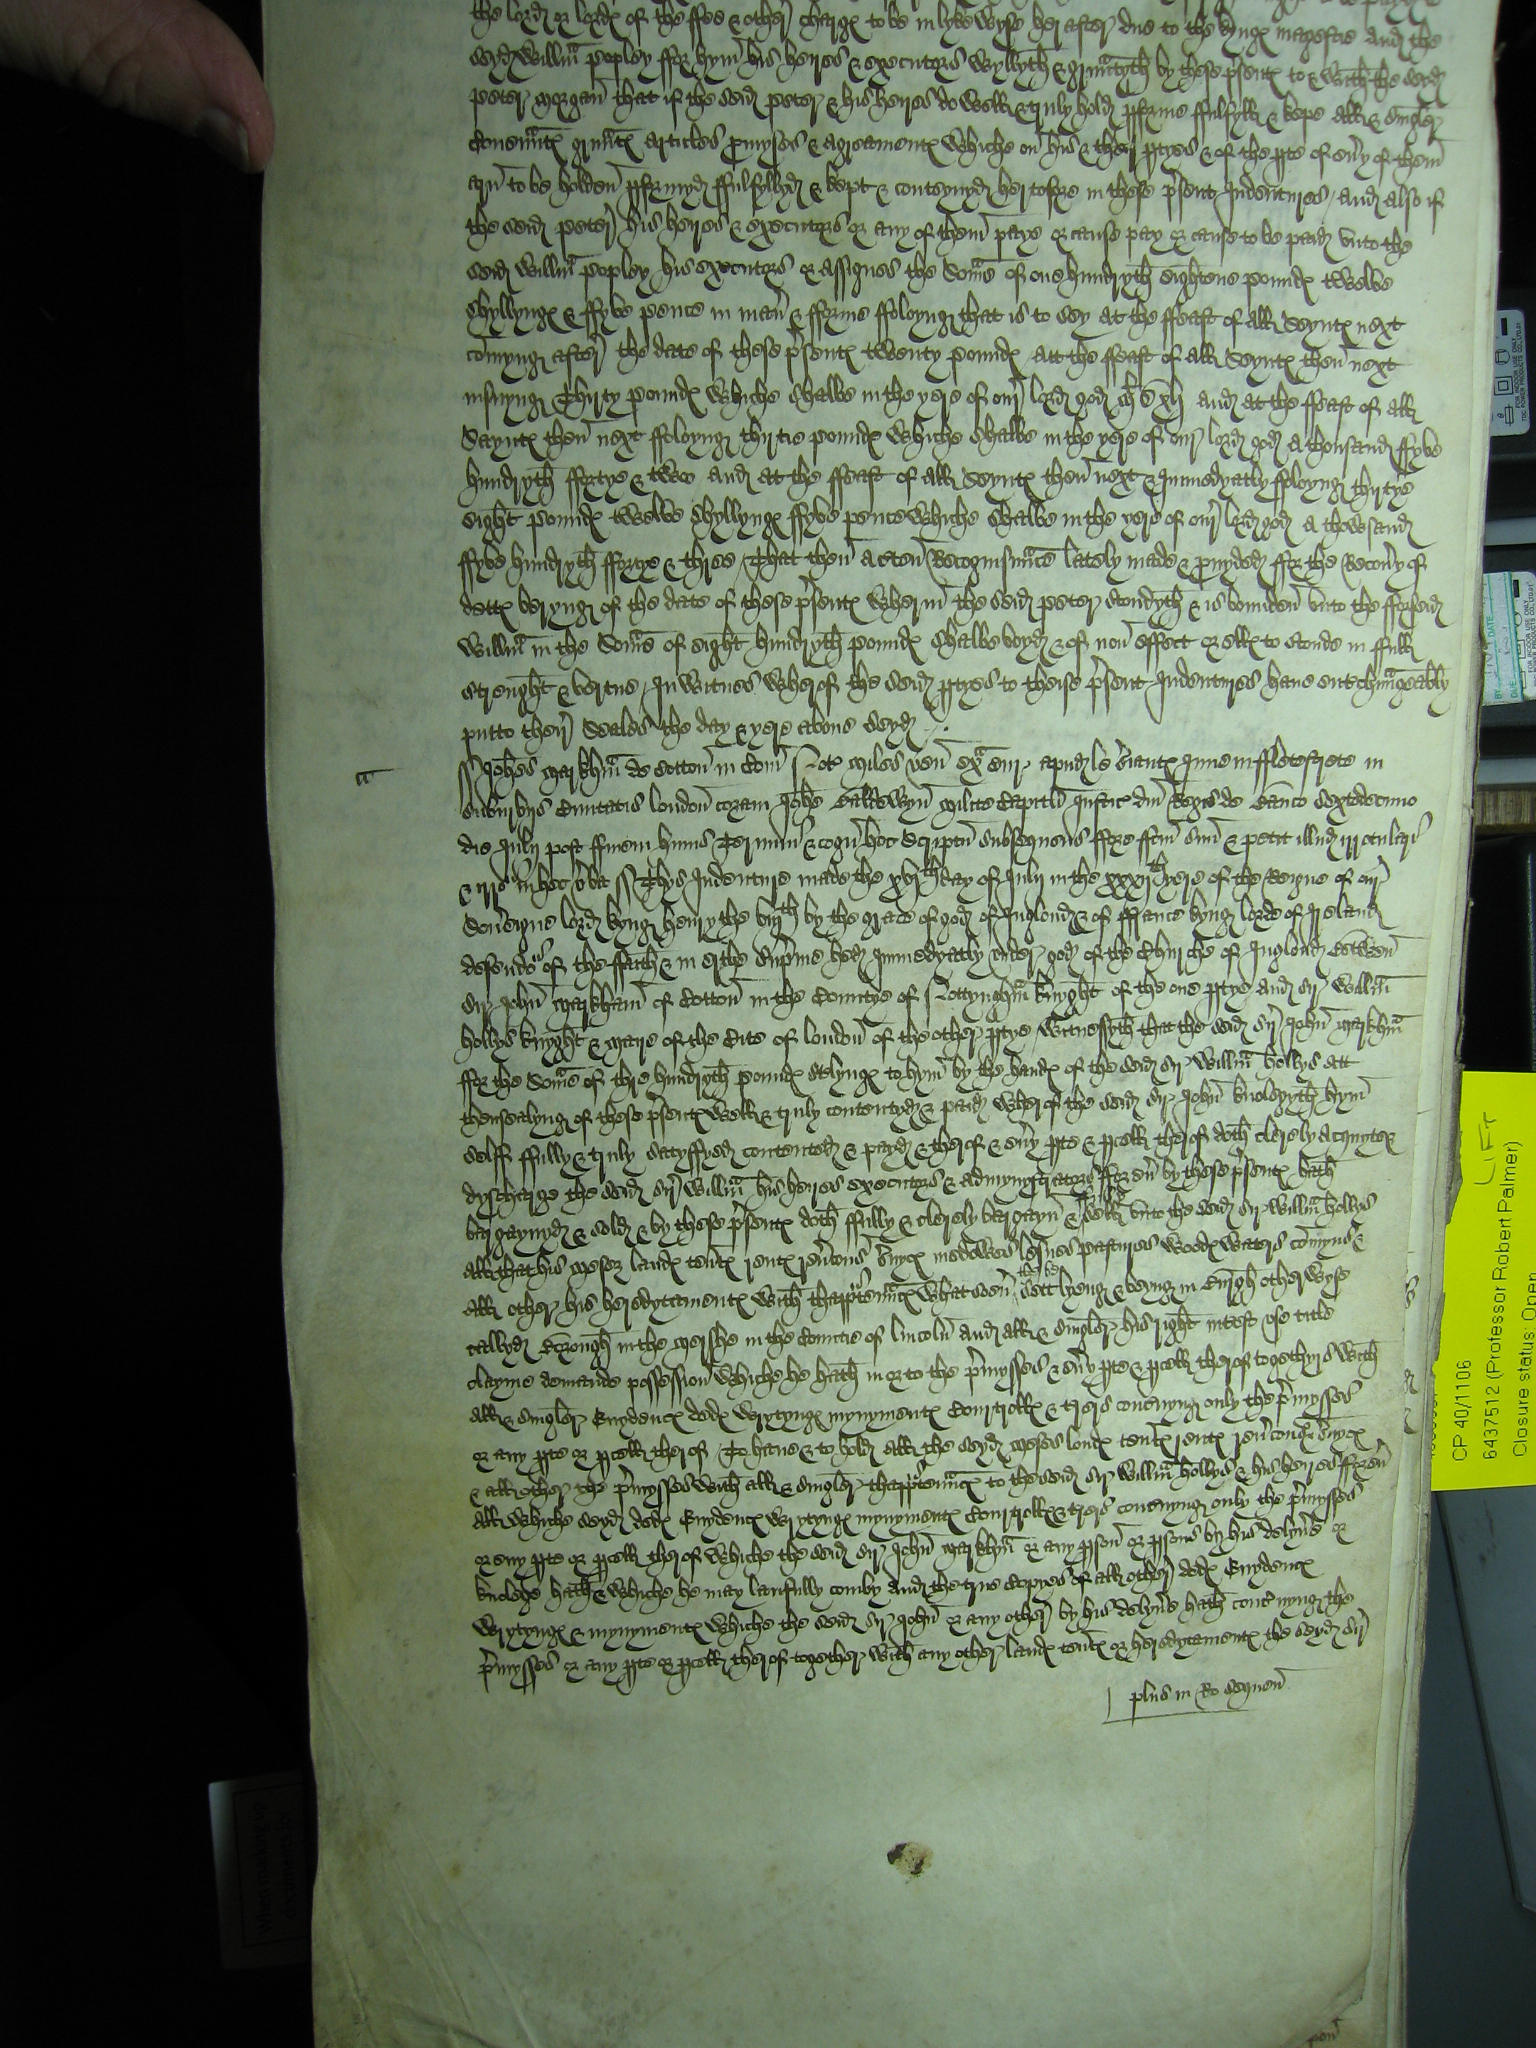 the lord or lordes of the ffee & other charges to be in lyke wyse her after due to the kynges mageste And the
seyd Willm Popley ffor hym his heires & executors wyllyth & grauntyth by these psentes to & with the seid
Peter Morgan that if the seid Peter & his heires do well & truly hold pforme ffulfyll & kepe all & singler
covenntes grauntes articles promyses & agreamentes whiche on his & ther ptyes & of the pte of eny of them
arn to be holden pformyd ffulfyllyd & kept & conteynyd hertofore in these psent Indentures / And also if
the seid Peter his heires & executors or any of them paye or cause pay or cause to be paid unto the
seid Willm Popley his executors or assignes the Some of one hundryth eightene poundes twelve
shyllynges & ffyve pence in man & fforme ffoloyng that is to sey at the ffeast of all Seyntes next
comyng after the date of these psentes twenty poundes Att the ffeast of all Seyntes then next
insuyng Thirty poundes whiche shalbe in the yere of our lord god And at the ffeast of all
Sayntes then next ffoloyng thirtie poundes whiche shalbe in the yere of our lord god a thousand ffyve
hundryth ffortye & two And at the ffeast of all Seyntes then next & Immedyatly ffoloyng thirtye
eight poundes twelve shyllynges ffyve pence whiche shalbe in the yere of our lord god a thowsand
ffyve hundryth ffortye & three / That then a Recognisance lately made & pvyded ffor the Recovy of
dettes beryng of the date of these psentes wherin the seid Peter stondyth & is bounden unto the fforseid
Willm in the Some of eight hundryth poundes shalbe voyd & of non effect or elles to stonde in ffull
strenght & vertue / In witnes wherof the seid ptyes to these psent Indentures have entchaungeably
putto ther Seales the day & yere above seyd
Johes Markham de Cotton in Com Not Miles ven apud le Siantes Inne in ffletestrete in
suburbys Civitatis london coram Johe Baldewyn Milite Capitali Justic dni Regis de Banco sextodecimo
die Julij post ffinem huius Termini & cogn hoc scriptum subsequens ffore ffcm suu & petit illud irrotulari
& irro in hec vba / Thys Indenture made the xvjth day of July in the yere of the Reigne of our
Soveigne lord kyng henry the viijth by the grace of god of Inglond & of ffrance kyng lorde of Ireland
defendor of the ffaith & in erthe Supreme hed Immedyatly under god of the Churche of Inglond Betwen
Sir John Markham of Cotton in the Countye of Nottyngham knyght of the one ptye And sir Willm
hollys knyght & Mare of the Cite of london of the other ptye / Witnessyth that the seid Sir John Markham
ffor the Some of thre hundryth poundes sterlynges to hym by the handes of the seid sir Willm hollys att
thensealyng of these psentes well & truly contentyd & paid wherof the seid sir John knolegyth hym
selff ffully & truly satysffyed contented & payd & therof & evy pte & pcell therof doth clerely acquyte &
dyscharge the seid sir Willm his heires executors & admynystrators fforev by these psentes hath
bargaynyd & sold & by these psentes doth ffully & clerely bargayn & sell unto the seid sir Willm hollys
All that his Meses landes tentes rentes revsions svices medowes lesues pastures woodes waters comyns &
all other his heredytamentes with thapptennces what soev they be sett lyeng & beyng in other wyse
callyd Brough in the Mershe in the Countie of lincoln And all & singler his right intest use title
clayme demaunde possession whiche he hath in or to the pmysses & evy pte & pcell therof togethyrs with
all & singler Evydences dedes wrytynges mynymentes Courtrolles & terrers conteynyng only the pmysses
or any pte or pcell therof / To have & to hold all the seyd Meses londes tentes rentes revcions svices
& all other the pmysses with all & singler thapptennces to the seid sir Willm hollys & his heires fforev
All whiche seyd dedes Evydences wrytynges mynymentes Courtrolles & terrers conteynyng only the pmysses
or eny pte or pcell therof whiche the seid sir John Markham or any pson or psons by his delyve or
knolege hath & whiche he may laufully comby And the true Copyes of all other dedes Evydences
wrytynges & mynymentes whiche the seid sir John or any other by his delyve hath conteynyng the
pmysses or any pte or pcell therof together with any other landes tentes or heredytamentes the seyd sir
plus in Ro sequen
LIFT
CP 40/1106
6437512 (Professor Robert Palmer)
Closure status: Open